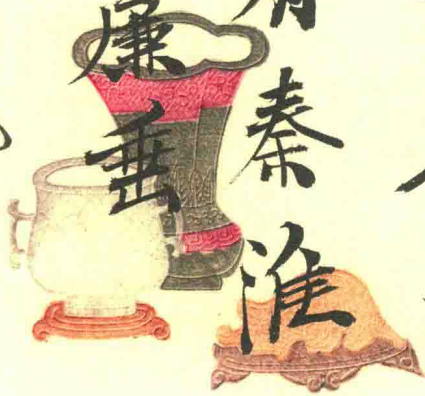 秦淮
廉垂